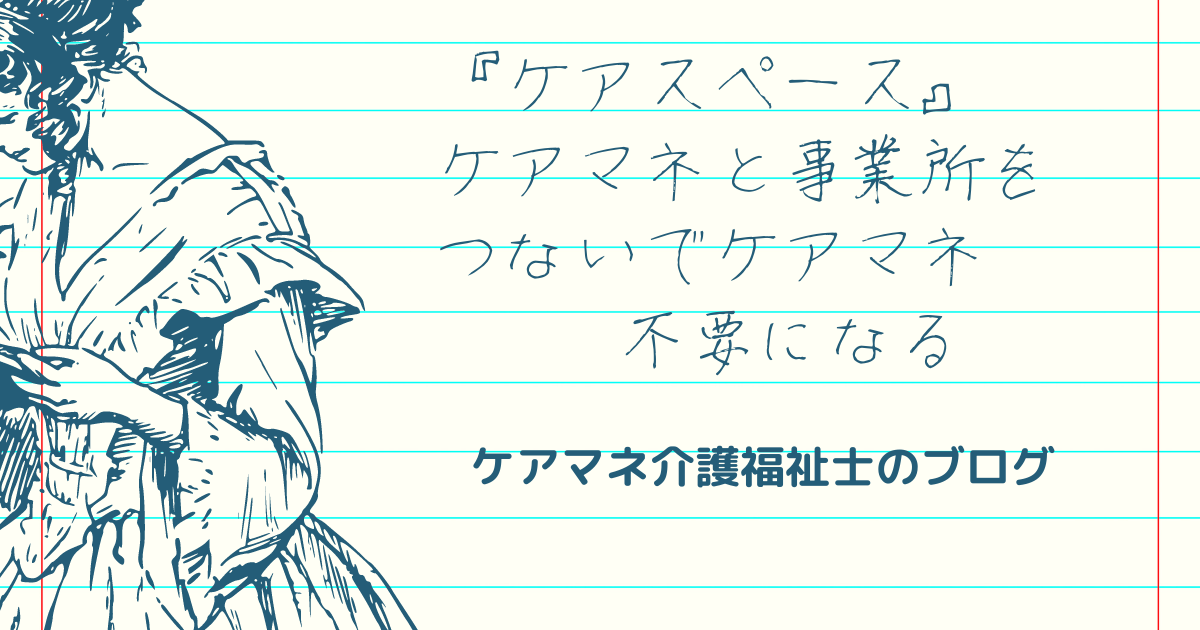 『ケアスペース』
ケアマネと事業所を
つないでケアマネ
不要になる
ケアマネ介護福祉士のブログ